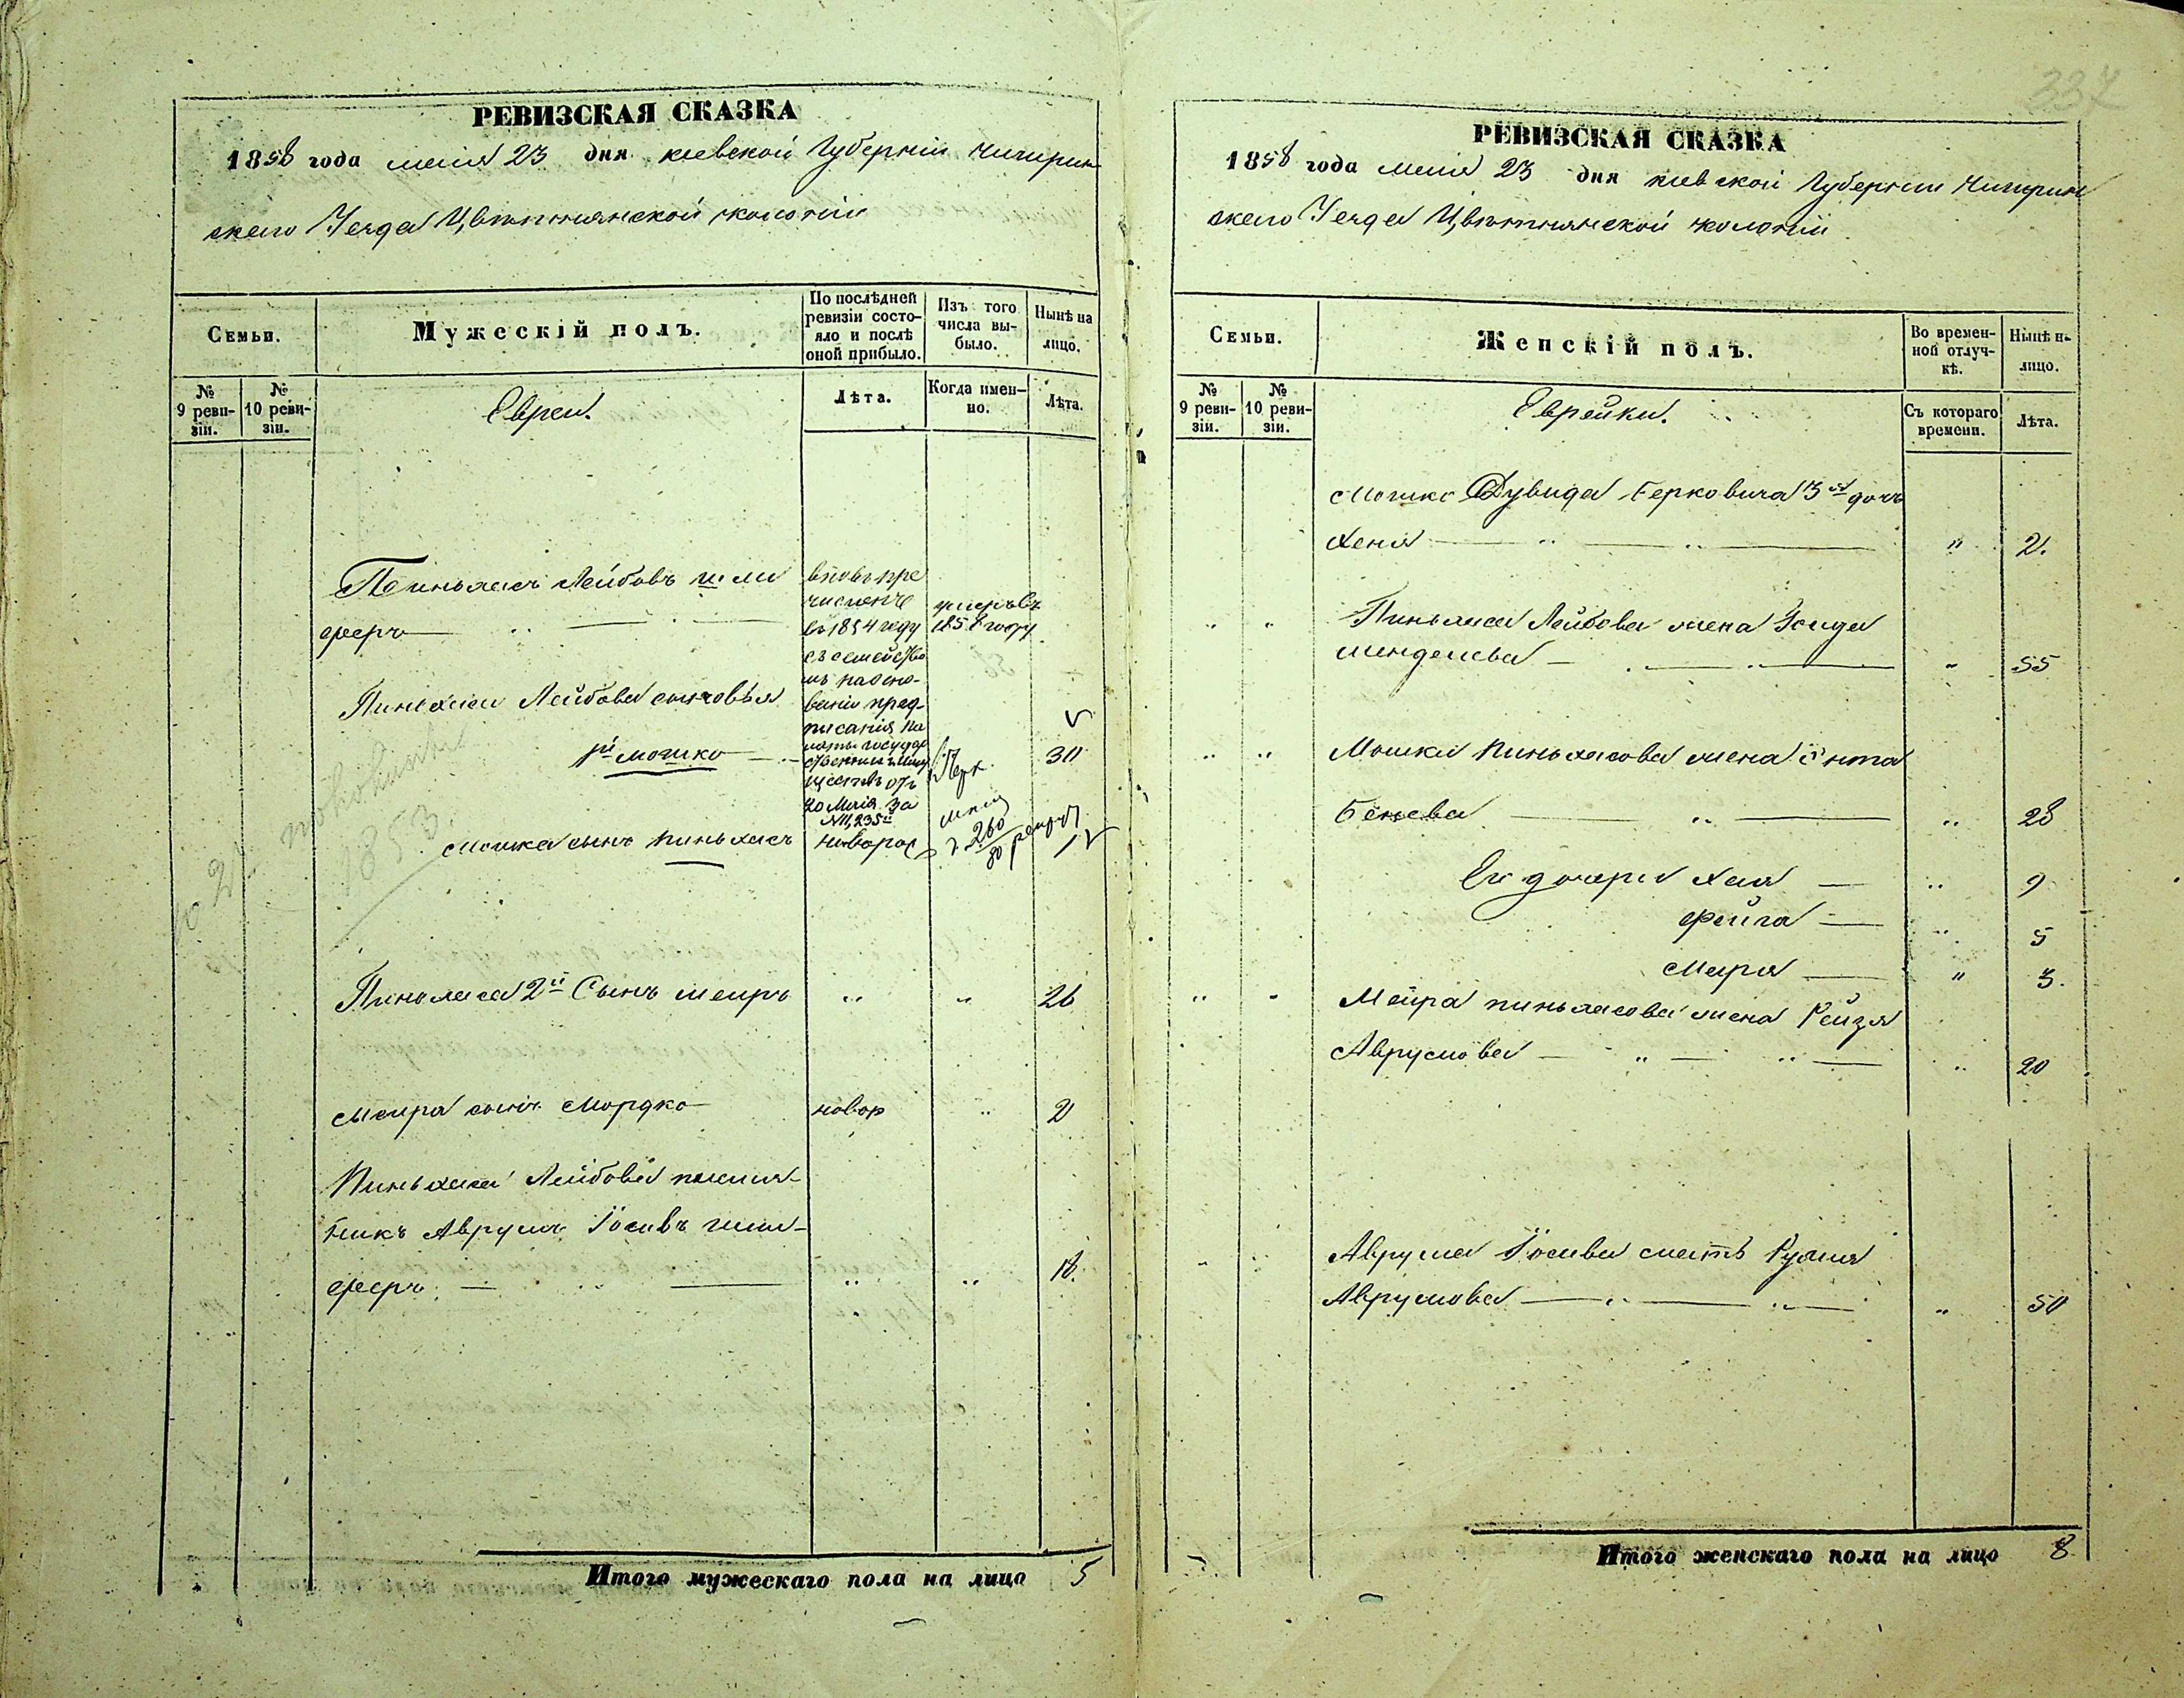 337
РЕВИЗСКАЯ СКАЗКА
1858 года маія 23 дня киевской Губерніи Чигирин
скаго Уезда Цвѣтнянской колоніи
Семьи.
Мужескій полъ.
По послѣдней ревизіи состо-
яло и послѣ
оной прибыло.
Изъ того
числа вы-
было.
Нынѣ на
лицо.
№
9 реви-
зіи.
№
10 реви-
зіи.
Евреи.
Лѣта.
Когда имен-
но.
Лѣта.
Пиньхасъ Лейбовъ шли
феръ
вновь при
численъ
въ 1854 году
съ семейство
мъ на осно-
ваніи пред-
писанія Па
латы Государ
ственныхъ Иму
ществъ отъ
20 Маія за
№ 11,235
умеръ въ
1858 году
Пиньхаса Лейбова сыновья
1й Мошко
30
Мошка сынъ Пиньхасъ
новорож
260
80
1853
Пиньхаса 2й Сынъ Меиръ
" " 26
Меира сынъ Мордко
новор " 2
Пиньхаса Лейбова племя-
никъ Аврумъ Іосивъ шли-
феръ " " 18.
Итого мужескаго пола на лицо 5
РЕВИЗСКАЯ СКАЗКА
1858 года маія 23 дня киевской Губерніи Чигирин
скаго Уезда Цвѣтнянской колоніи
Семьи.
Женскій полъ.
Во времен-
ной отлуч-
кѣ.
Нынѣ н-
лицо.
№
9 реви-
зіи.
№
10 реви-
зіи.
Еврейки.
Съ котораго
времени.
Лѣта.
Мошко Дувида Берковича 3я дочь
Хеня " 2.
Пиньхаса Лейбова жена Зсида
Менделева " 55
Мошки Пиньхасова жена Ента
Бенева " 28
Его дочери Хая " 9
Фейга " 5
Мария " 3.
Меира пиньхасова жена Рейзя
Аврумова " 20
Аврума Іосива мать Рухля
Аврумова " 50
Итого женскаго пола на лицо 8